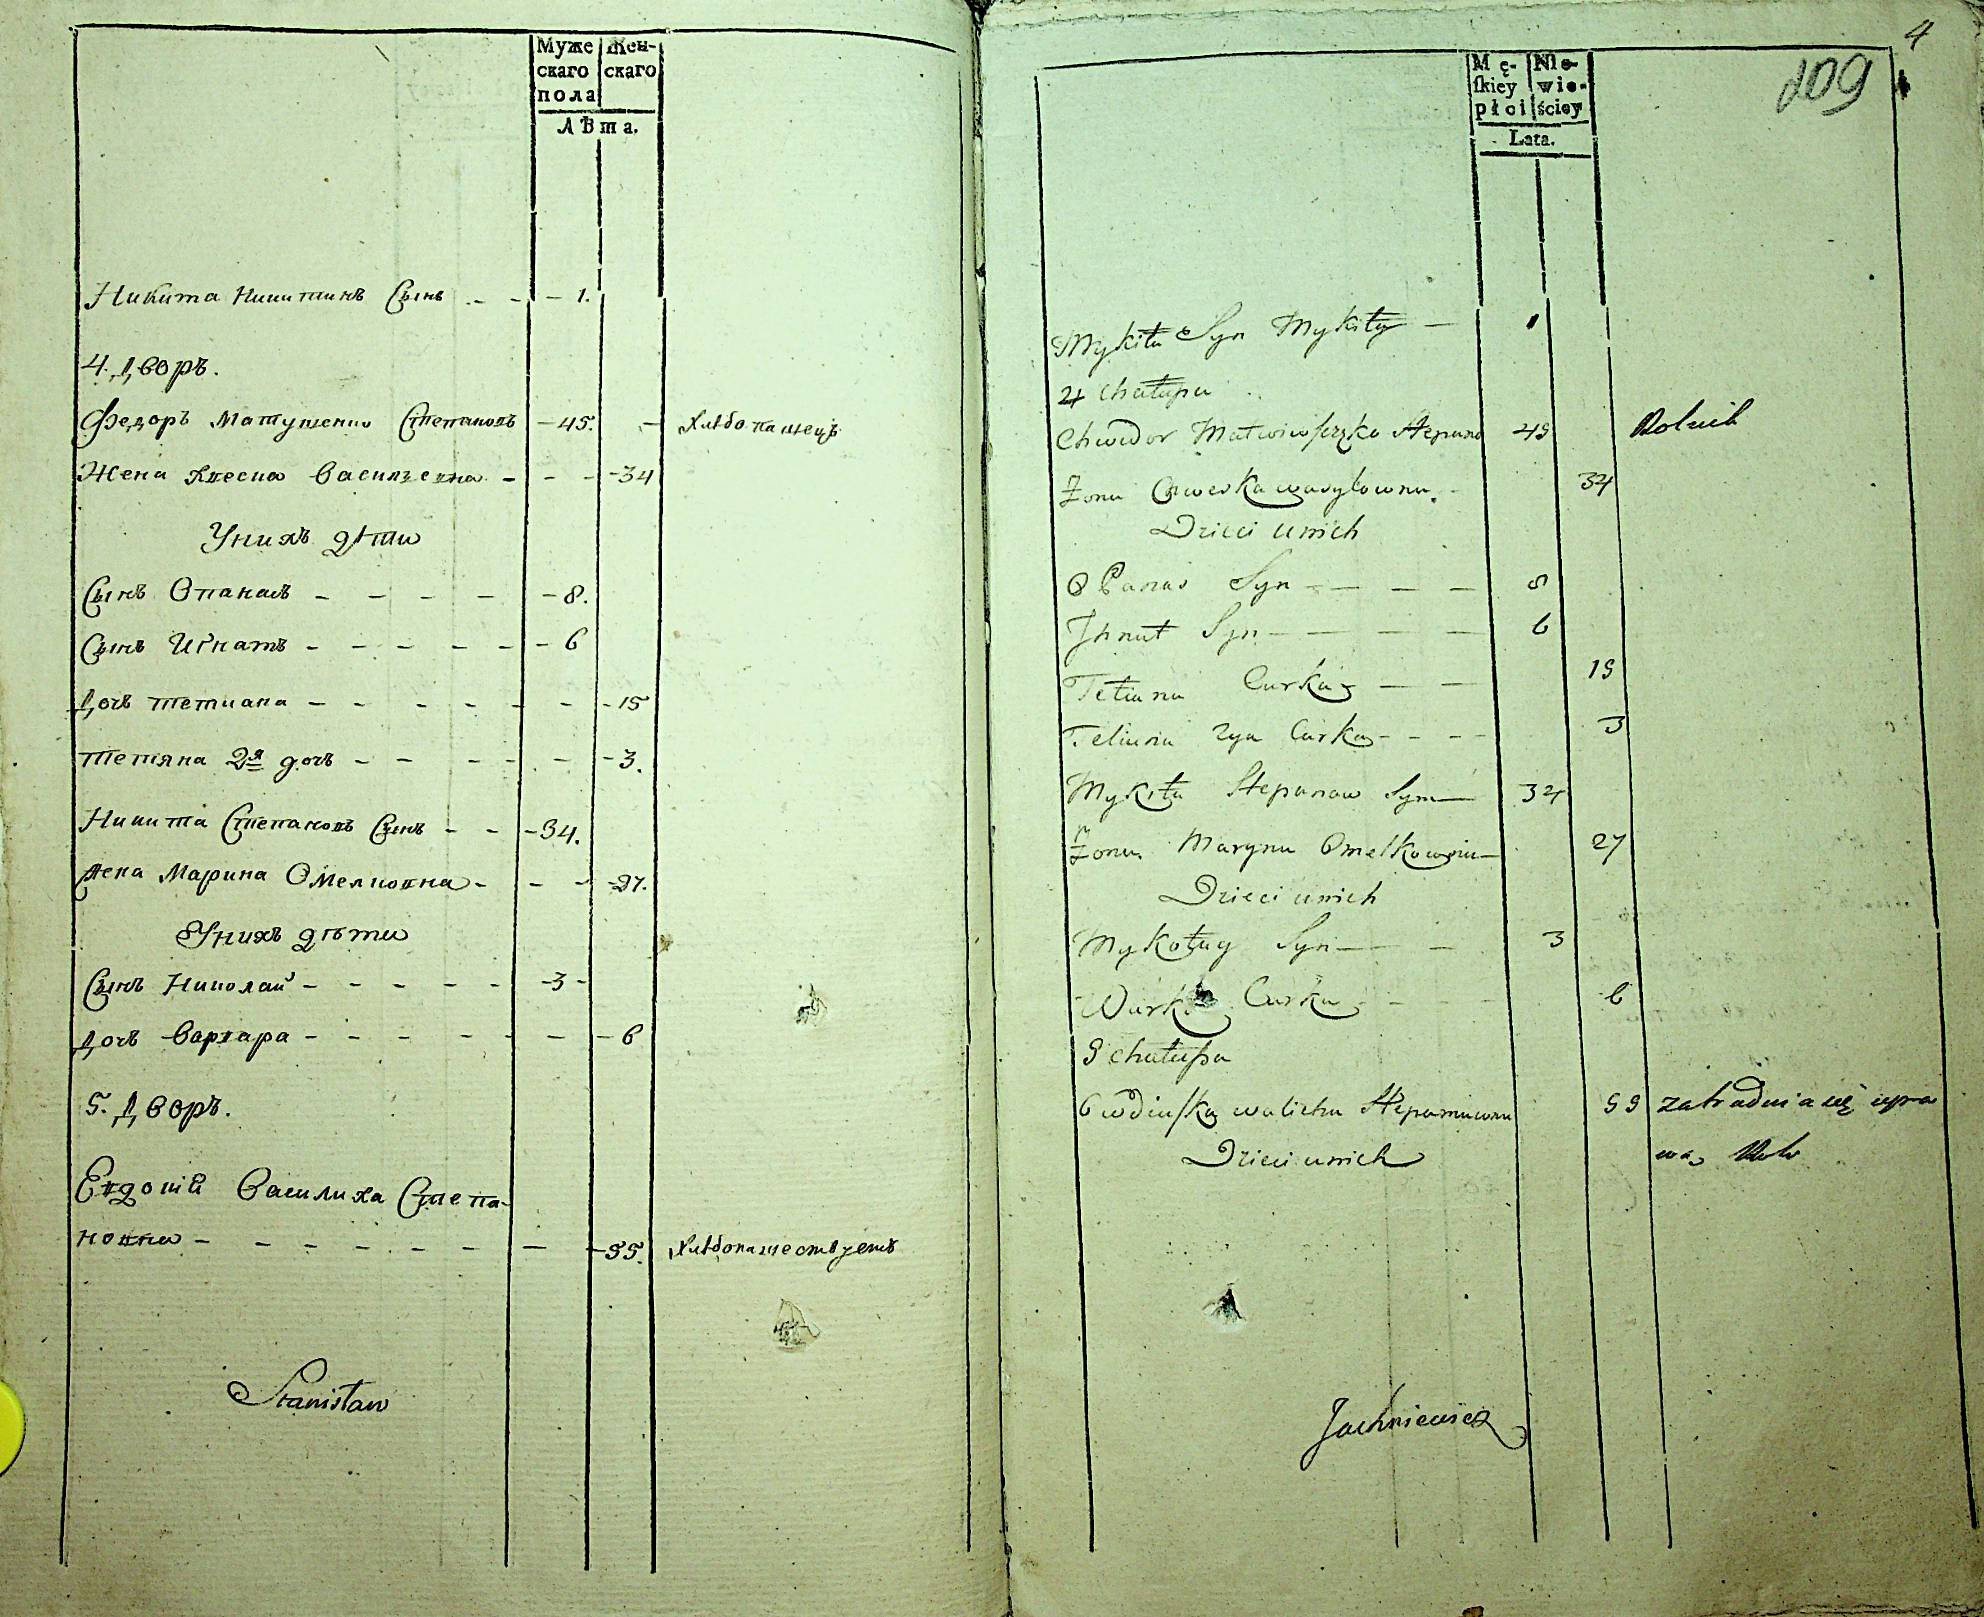 Муже
скаго
пола
Жен-
скаго
Лѣта.
Никита Никитинъ Сынъ - - - 1.
4. Дворъ.
Федоръ Матушенко Степановъ - 45. - Хлѣбопашецъ
Жена Васильевна - - - - 34
У нихъ дѣти
Сынъ Опанасъ - - - - - 8.
Сынъ Игнатъ - - - - - - 6
Дочь Тетиана - - - - - - - 15
Тетяна 2я дочь - - - - - - 3.
Никита Степановъ Сынъ - - - 34.
Жена Марина Омелковна - - - - 27.
У нихъ дѣти
Сынъ Николай - - - - - - 3 -
Дочь Варвара - - - - - - - 6
5. Дворъ.
Василиха Степа-
новна - - - - - - - - - 55. Хлѣбопашествуетъ
Stanisław
4
209
Mę-
skiey
płci
Nie-
wie-
ściey
Lata.
Mykita Syn Mykity — 1
4 Chałupa
Chwedor Stepanow 45 Rolnik
Żona Wasylowna. - 34
Dzieci u nich
Opanas Syn - — — — 8
Ihnat Syn — — — — 6
Tetiana Curka — — 15
Tetiana 2ga Curka - - - - 3
Mykita Stepanow Syn — 34
Żona Maryna Omelkowna — 27
Dzieci u nich
Mykołay Syn — — 3
Warka Curka - - - - 6
5 chałupa
Stepanowna 55 zatrudnia się upra
wą Roli
Dzieci u nich
Jachniewicz